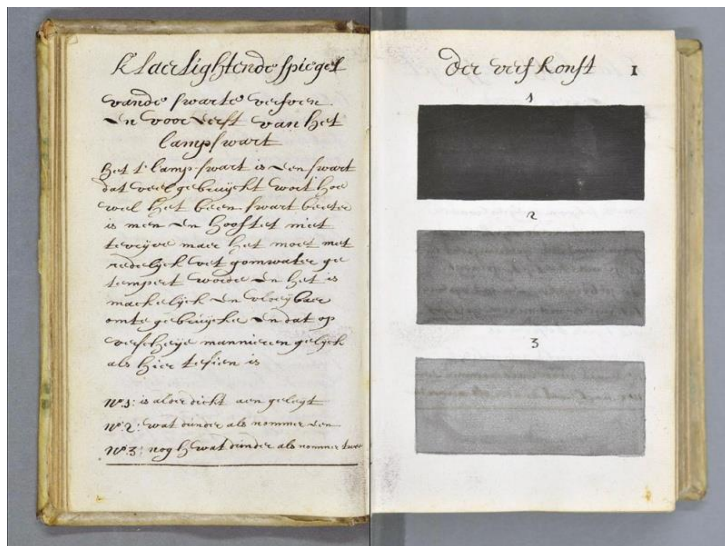 Klaerlightende spiegel
vande swarte verfven
en voor eerst van het
lampswart
Het t' lamp swart is een swart
dat veel gebruijckt wort hoe
wel het been swart beeter
is men en hooftet niet
te vrijve maer het moet met
redelijck vet gomwater ge
tempert worde en het is
mackelijck en vloeijbaer
omte gebruijcke en dat op
verscheije mannieren gelijck
als hier te sien is
Nº 1: is alder dicht aen geleijt
Nº 2: wat dunder als nommer een
Nº 3: nog wat dunder als nommer twee
der verfkonst 1
1
2
3